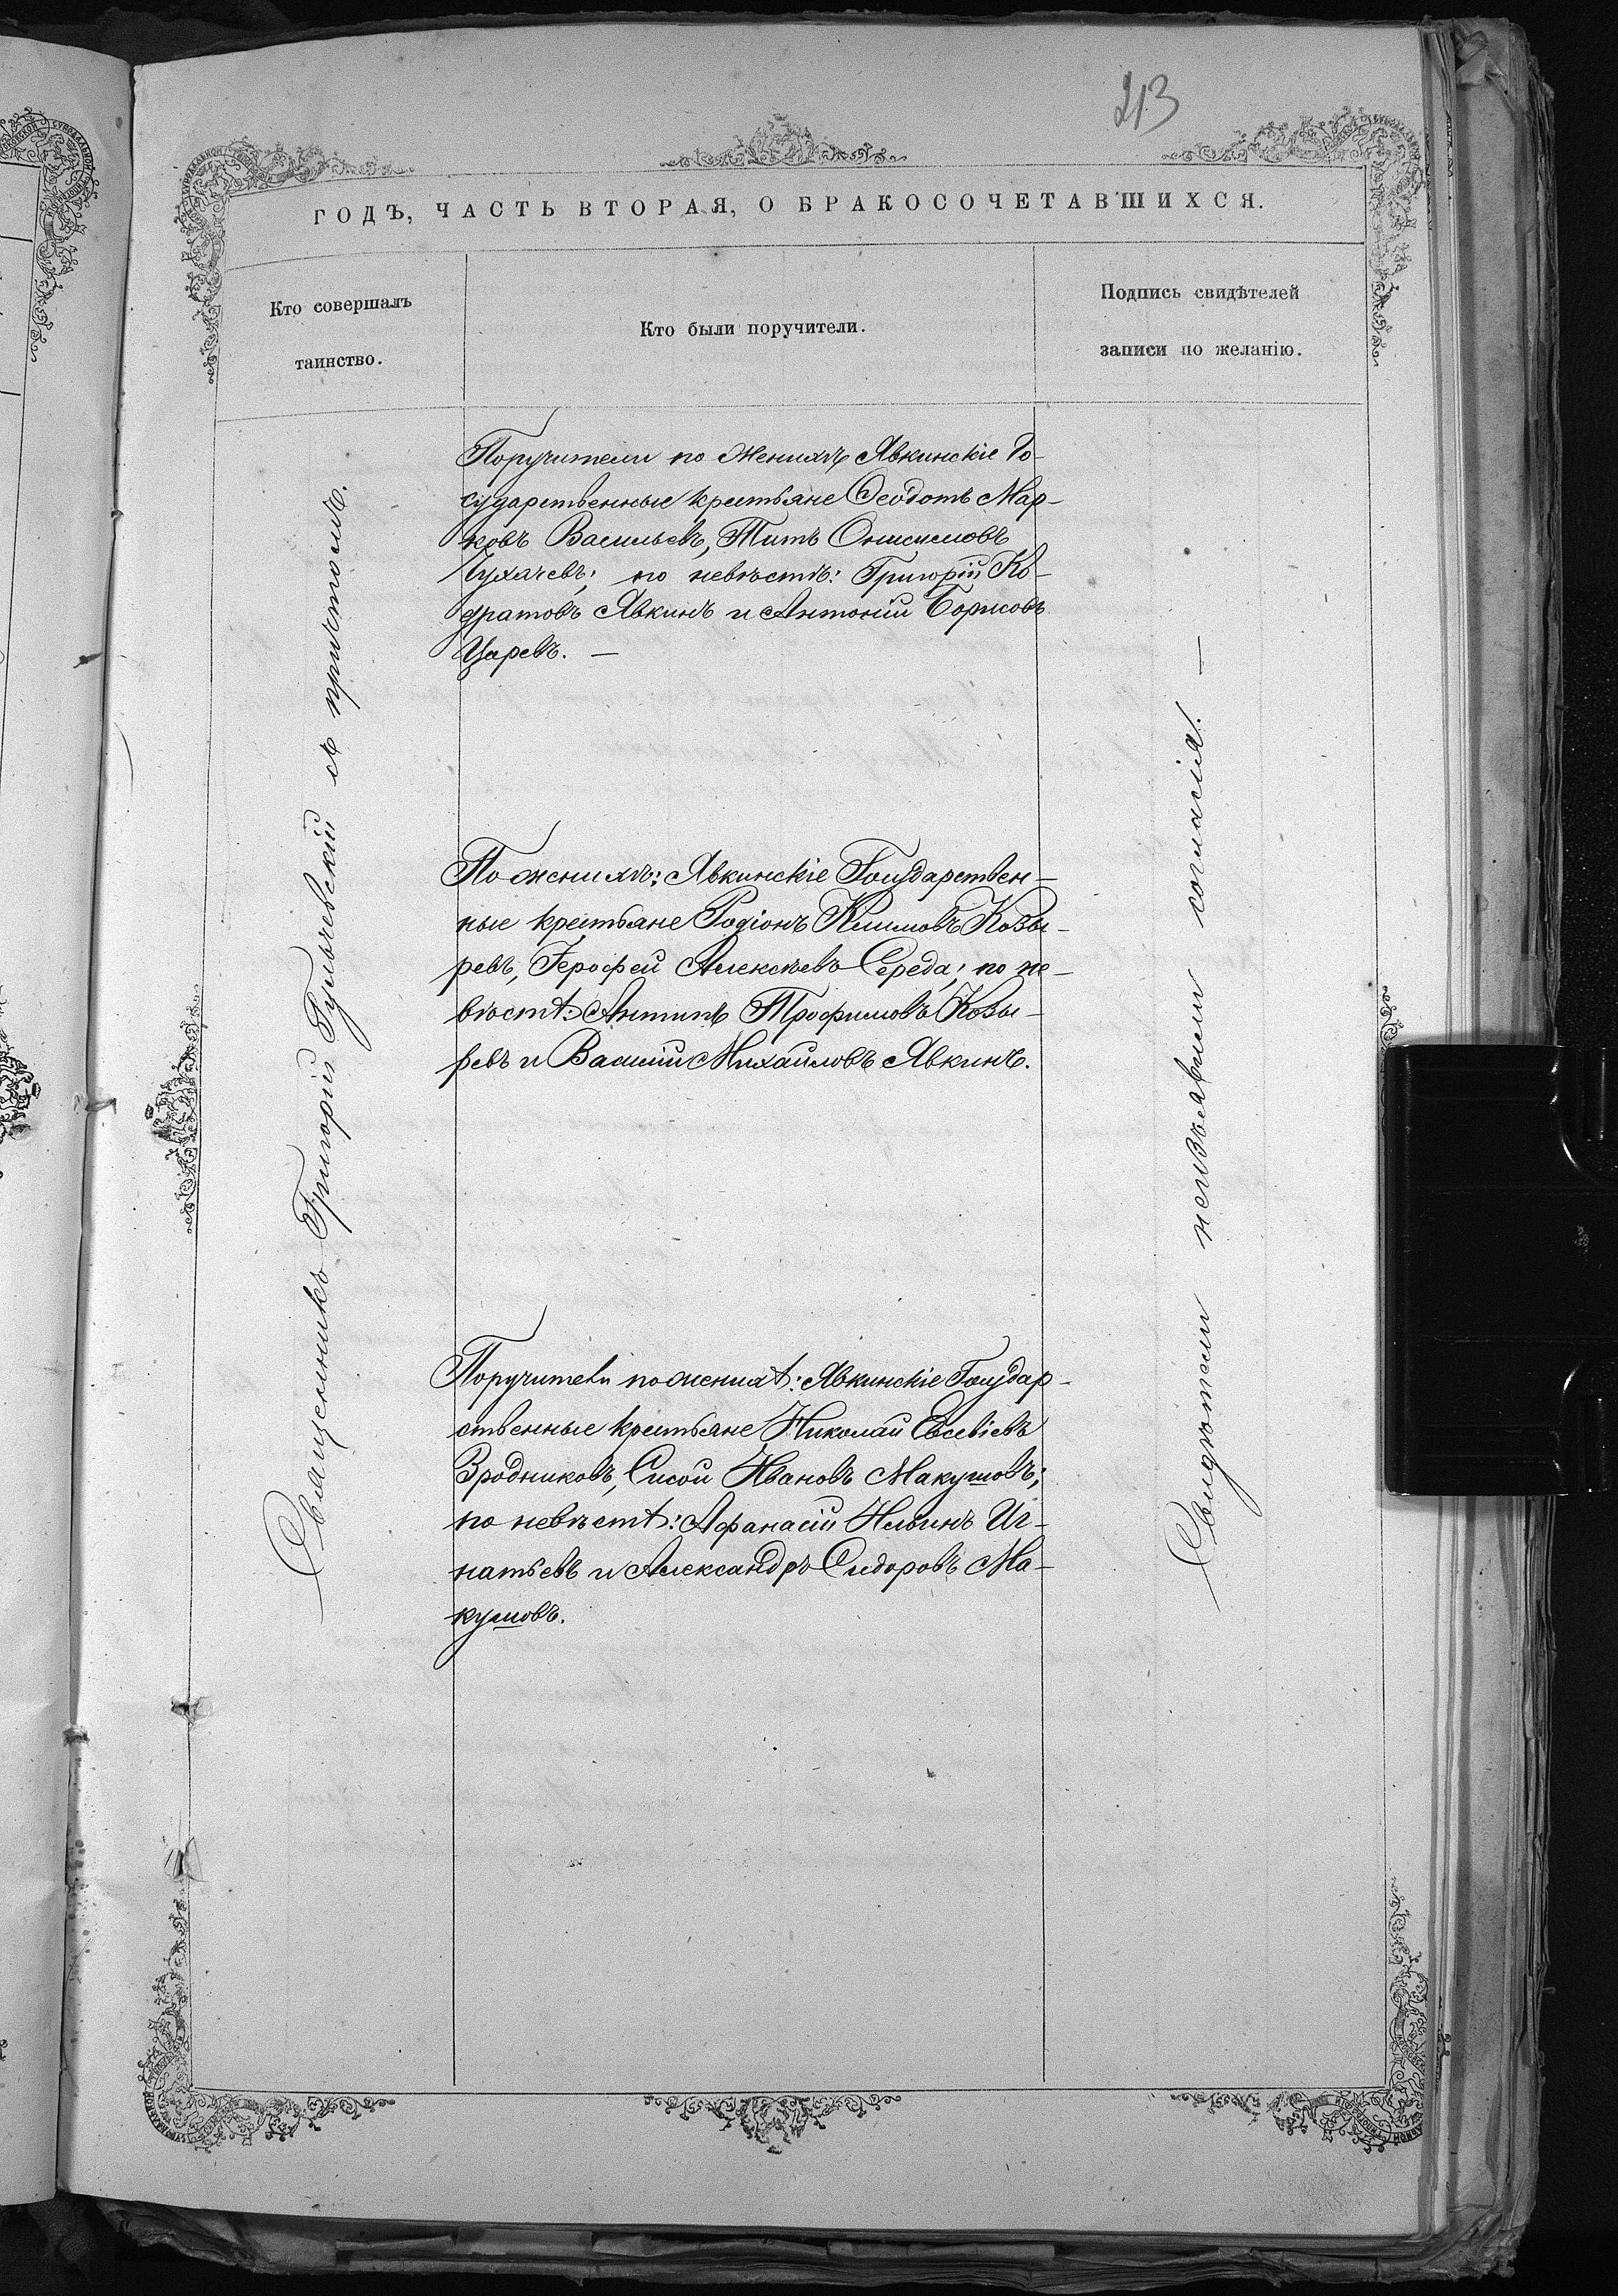 213
ГОДЪ, ЧАСТЬ ВТОРАЯ, О БРАКОСОЧЕТАВШИХСЯ.
Кто совершалъ
таинство.
Кто были поручители.
Подпись свидѣтелей
записи по желанію.
Священникъ Григорій Гульчевскій съ причтомъ.
Поручители по женихѣ Явкинскіе Го-
сударственные крестьяне Ѳеодотъ Мар-
ковъ Васильевъ, Титъ Онисимовъ
Чухачевъ; по невѣстѣ: Григорій Ко-
дратовъ Явкинъ и Антоній Борисовъ
Царевъ. —
По женихѣ: Явкинскіе Государствен-
ные крестьяне Родіонъ Климовъ Козы-
ревъ, Іерофей Алексѣевъ Середа; по не-
вѣстѣ: Антипъ Трофимовъ Козы-
ревъ и Василій Михайловъ Явкинъ.
Поручители по женихѣ: Явкинскіе Государ-
ственные крестьяне Николай Евсевіевъ
Бродниковъ, Сисой Ивановъ Макушовъ;
по невѣстѣ: Афанасій Ильинъ Иг-
натьевъ и Александръ Сидоровъ Ма-
кушовъ.
Свидѣтели неизъявили согласія. —